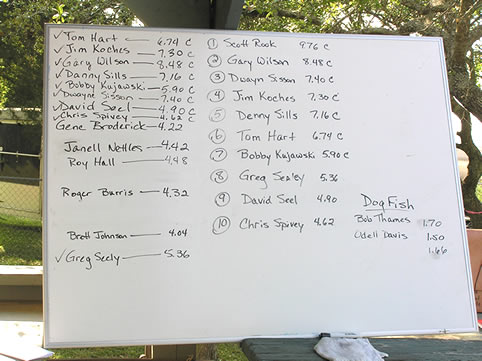 ✓ Tom Hart — 6.74 C
✓ Jim Koches — 7.30 C
✓ Gary Wilson — 8.48 C
✓ Danny Sills — 7.16 C
✓ Bobby Kujawski — 5.90 C
✓ Dwayne Sisson — 7.40 C
✓ David Seel — 4.90 C
✓ Chris Spivey — 4.62 C
Gene Broderick — 4.22
Janell Nettles — 4.42
Roy Hall — 4.48
Roger Burris — 4.32
Brett Johnson — 4.04
✓ Greg Seely — 5.36
① Scott Rook 9.76 C
② Gary Wilson 8.48 C
③ Dwayn Sisson 7.40 C
④ Jim Koches 7.30 C
⑤ Denny Sills 7.16 C
⑥ Tom Hart 6.74 C
⑦ Bobby Kujawski 5.90 C
⑧ Greg Sealey 5.36
⑨ David Seel 4.90
⑩ Chris Spivey 4.62
Dog Fish
Bob Thames 1.70
Odell Davis 1.50
1.66